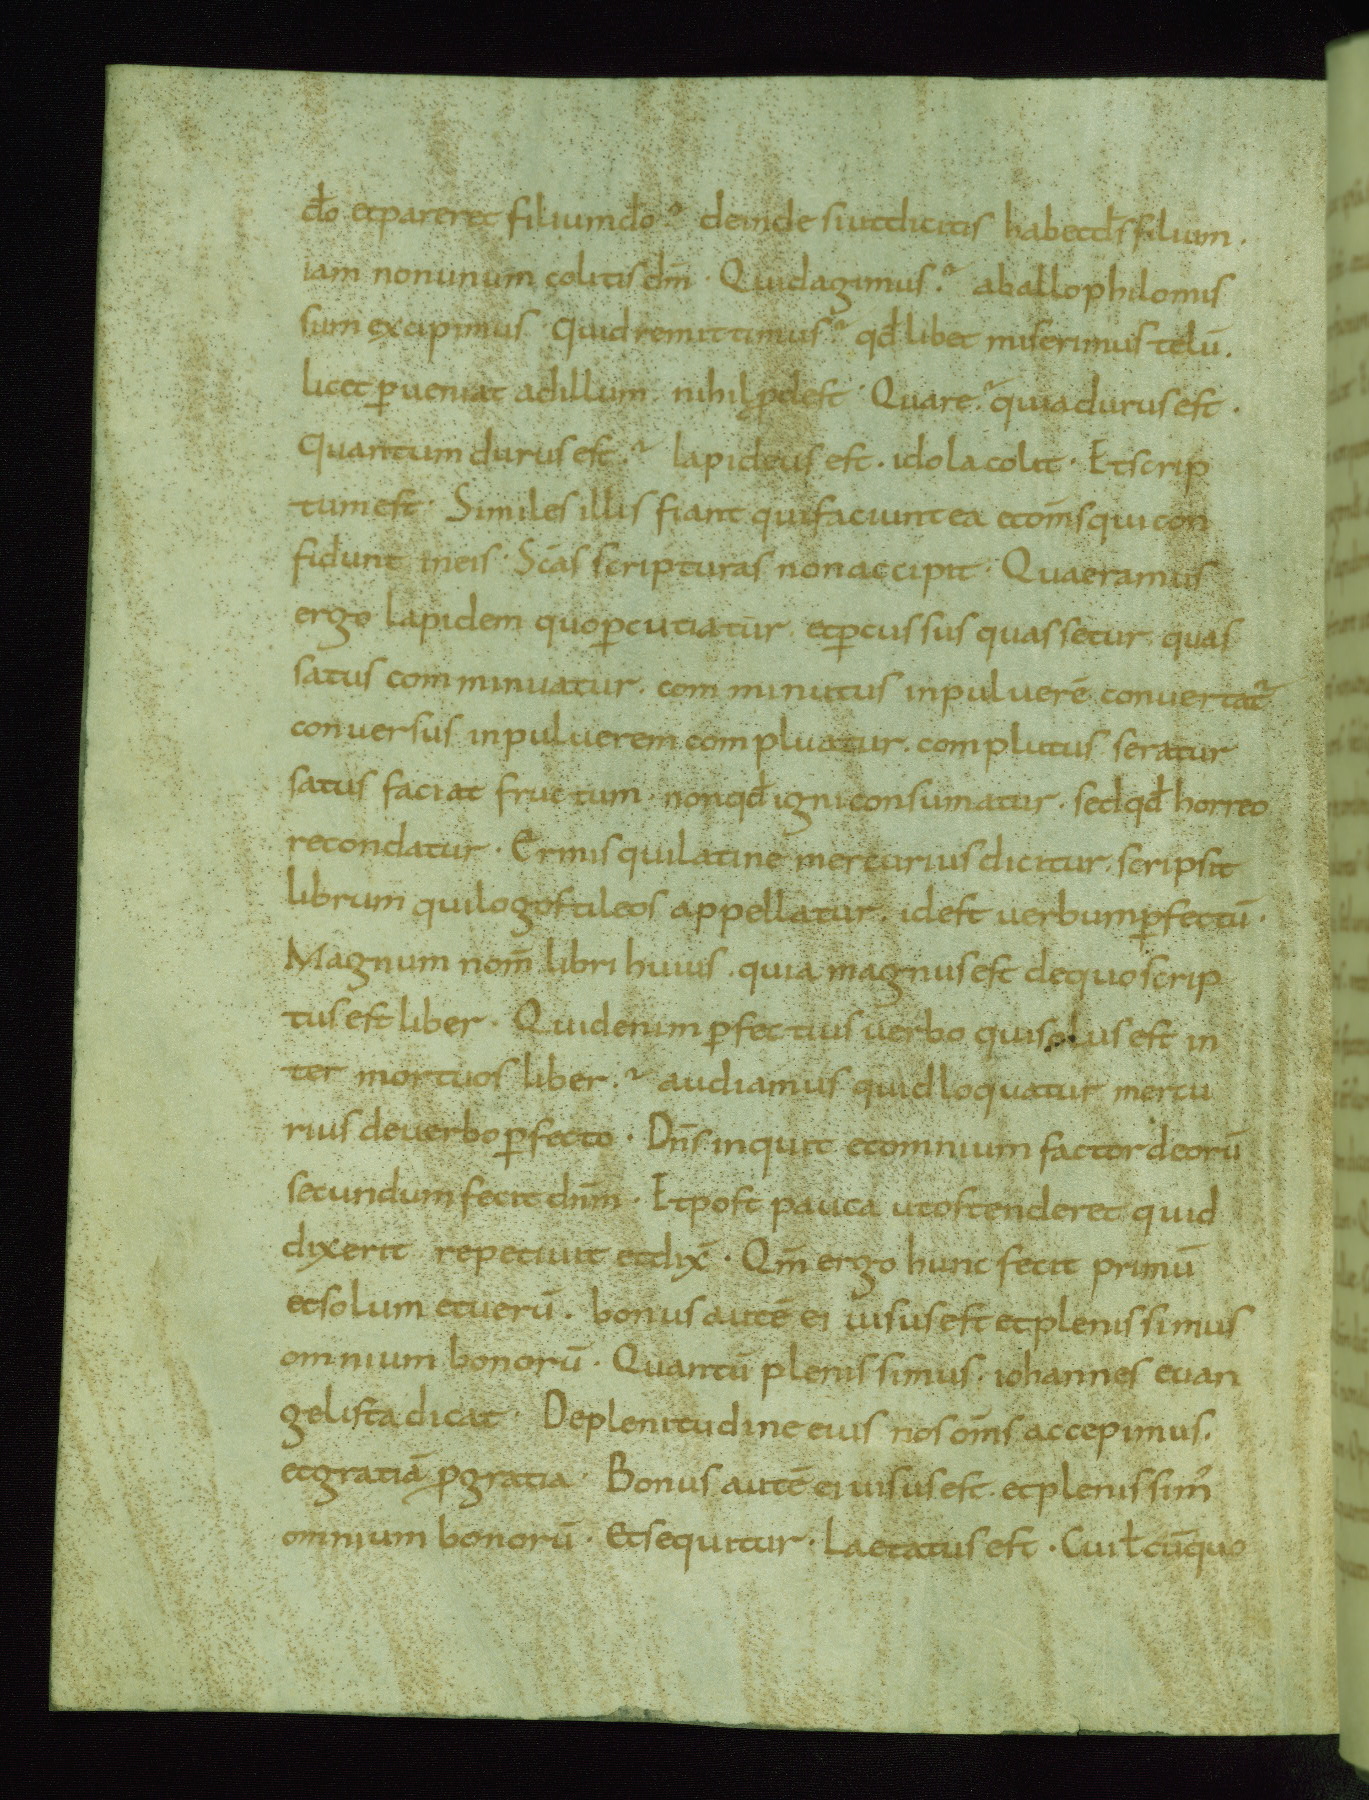 do̅ et pareret filium do̅? deinde si ut dicitis habet ds̅ filium.
iam non unum colitis dm̅. Quid agimus? ab allophilo mis
sum excipimus. quid remittimus? qd̅ libet miserimus telū.
licet ꝑueniat ad illum. nihil ꝓdest. Quare? quia durus est.
Quantum durus est? lapideus est. idola colit. Et scrip
tum est. Similes illis fiant qui faciunt ea et om̅s qui con
fidunt in eis. Sc̅as scripturas non accipit. Quaeramus
ergo lapidem quo ꝑcutiatur. et ꝑcussus quassetur. quas
satus comminuatur. comminutus in puluerē conuertat᷑
conuersus in puluerem compluatur. complutus seratur
satus faciat fructum. non qd̅ igni consumatur. sed qd̅ horreo
recondatur. Ermis qui latine mercurius dicitur. scripsit
librum qui logostileos appellatur. id est uerbum ꝑfectū.
Magnum nom̅ libri huius. quia magnus est de quo scrip
tus est liber. Quid enim ꝑfectius uerbo qui solus est in
ter mortuos liber? audiamus quid loquatur mercu
rius de uerbo ꝑfecto. Dn̅s inquit et omnium factor deorū
secundum fecit dnm̅. Et post pauca ut ostenderet quid
dixerit repetiuit et dix̅. Qm̅ ergo hunc fecit primū
et solum et uerū. bonus autē ei uisus est et plenissimus
omnium bonorū. Quantū plenissimus. iohannes euan
gelista dicat. De plenitudine eius nos om̅s accepimus.
et gratiā ꝓ gratia. Bonus autē ei uisus est. et plenissim᷒
omnium bonorū. Et sequitur. Laetatus est. Cui ł cū quo